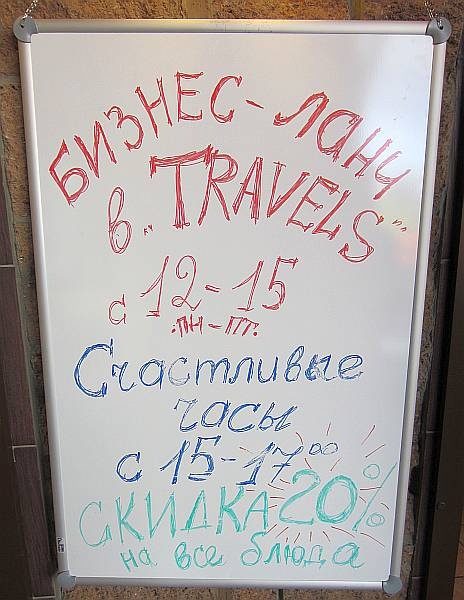 БИЗНЕС-ЛАНЧ
в "TRAVELS"
с 12-15
ПН-ПТ.
Счастливые
часы
с 15-17⁰⁰
СКИДКА 20%
на все блюда